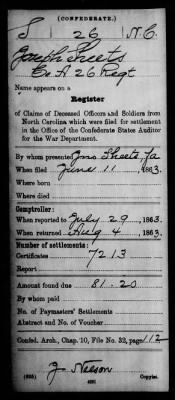 (CONFEDERATE.)
S 26 N.C.
Joseph Sheets
Co. A 26 Regt
Name appears on a
Register
of Claims of Deceased Officers and Soldiers from
North Carolina which were filed for settlement
in the Office of the Confederate States Auditor
for the War Department.
By whom presented Jno Sheets, fa
When filed June 11, 1863.
Where born
Where died
Comptroller:
When reported to July 29, 1863.
When returned Aug 4, 1863.
Number of settlements:
Certificates 7213
Report
Amount found due 81.20
By whom paid
No. Paymasters' Settlements
Abstract and No. of Voucher
Confed. Arch., Chap. 10, File No. 32, page 112
J Nelson
Copyist.